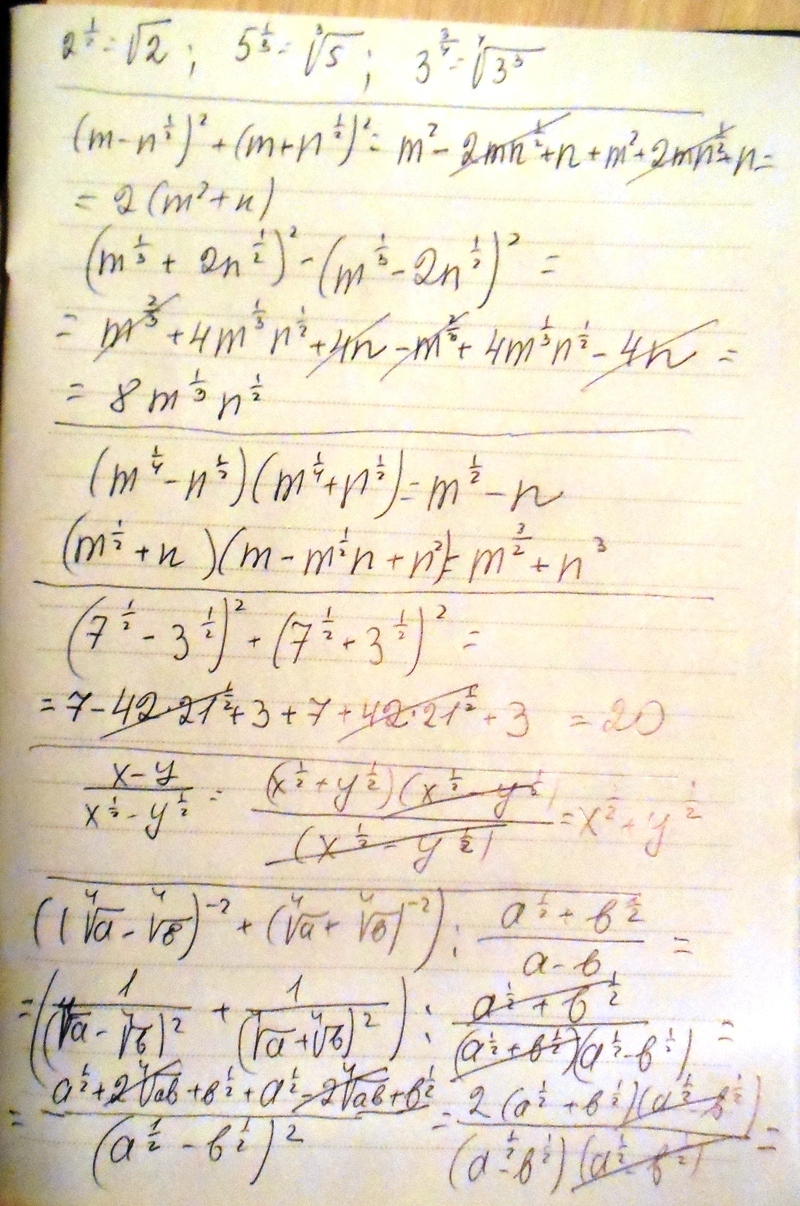 2^{1/2} = √2 ; 5^{1/3} = ∛5 ; 3^{3/4} = ∜3³
(m - n^{1/2})² + (m + n^{1/2})² = m² - 2mn^{1/2} + n + m² + 2mn^{1/2} + n =
= 2(m² + n)
(m^{1/3} + 2n^{1/2})² - (m^{1/3} - 2n^{1/2})² =
= m^{2/3} + 4m^{1/3}n^{1/2} + 4n - m^{2/3} + 4m^{1/3}n^{1/2} - 4n =
= 8m^{1/3}n^{1/2}
(m^{1/4} - n^{1/2})(m^{1/4} + n^{1/2}) = m^{1/2} - n
(m^{1/2} + n)(m - m^{1/2}n + n²) = m^{3/2} + n³
(7^{1/2} - 3^{1/2})² + (7^{1/2} + 3^{1/2})² =
= 7 - 42·21^{1/2} + 3 + 7 + 42·21^{1/2} + 3 = 20
(x - y)/(x^{1/2} - y^{1/2}) = (x^{1/2} + y^{1/2})(x^{1/2} - y^{1/2})/(x^{1/2} - y^{1/2}) = x^{1/2} + y^{1/2}
((∜a - ∜b)^{-2} + (∜a + ∜b)^{-2}) : (a^{1/2} + b^{1/2})/(a - b) =
= (1/(∜a - ∜b)² + 1/(∜a + ∜b)²) : (a^{1/2} + b^{1/2})/((a^{1/2} + b^{1/2})(a^{1/2} - b^{1/2})) =
= (a^{1/2} + 2∜ab + b^{1/2} + a^{1/2} - 2∜ab + b^{1/2})/(a^{1/2} - b^{1/2})² = 2(a^{1/2} + b^{1/2})(a^{1/2} - b^{1/2})/((a^{1/2} - b^{1/2})(a^{1/2} - b^{1/2})) =